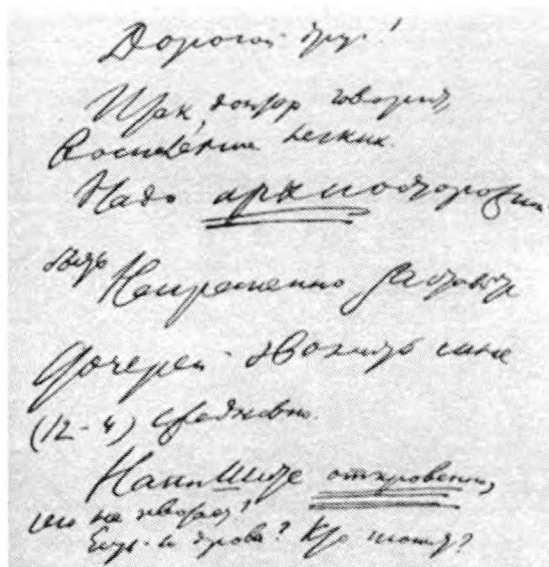 Дорогой друг!
Итак, доктор говорит,
воспаление легких.
Надо архиосторожн
быть Непременно заставьте
дочерей звонить мне
(12-4) ежедневно.
Напишите откровенно,
чего не хватает?
Есть ли дрова? Кто топит?